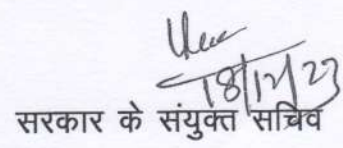 18/12/23
सरकार के संयुक्त सचिव